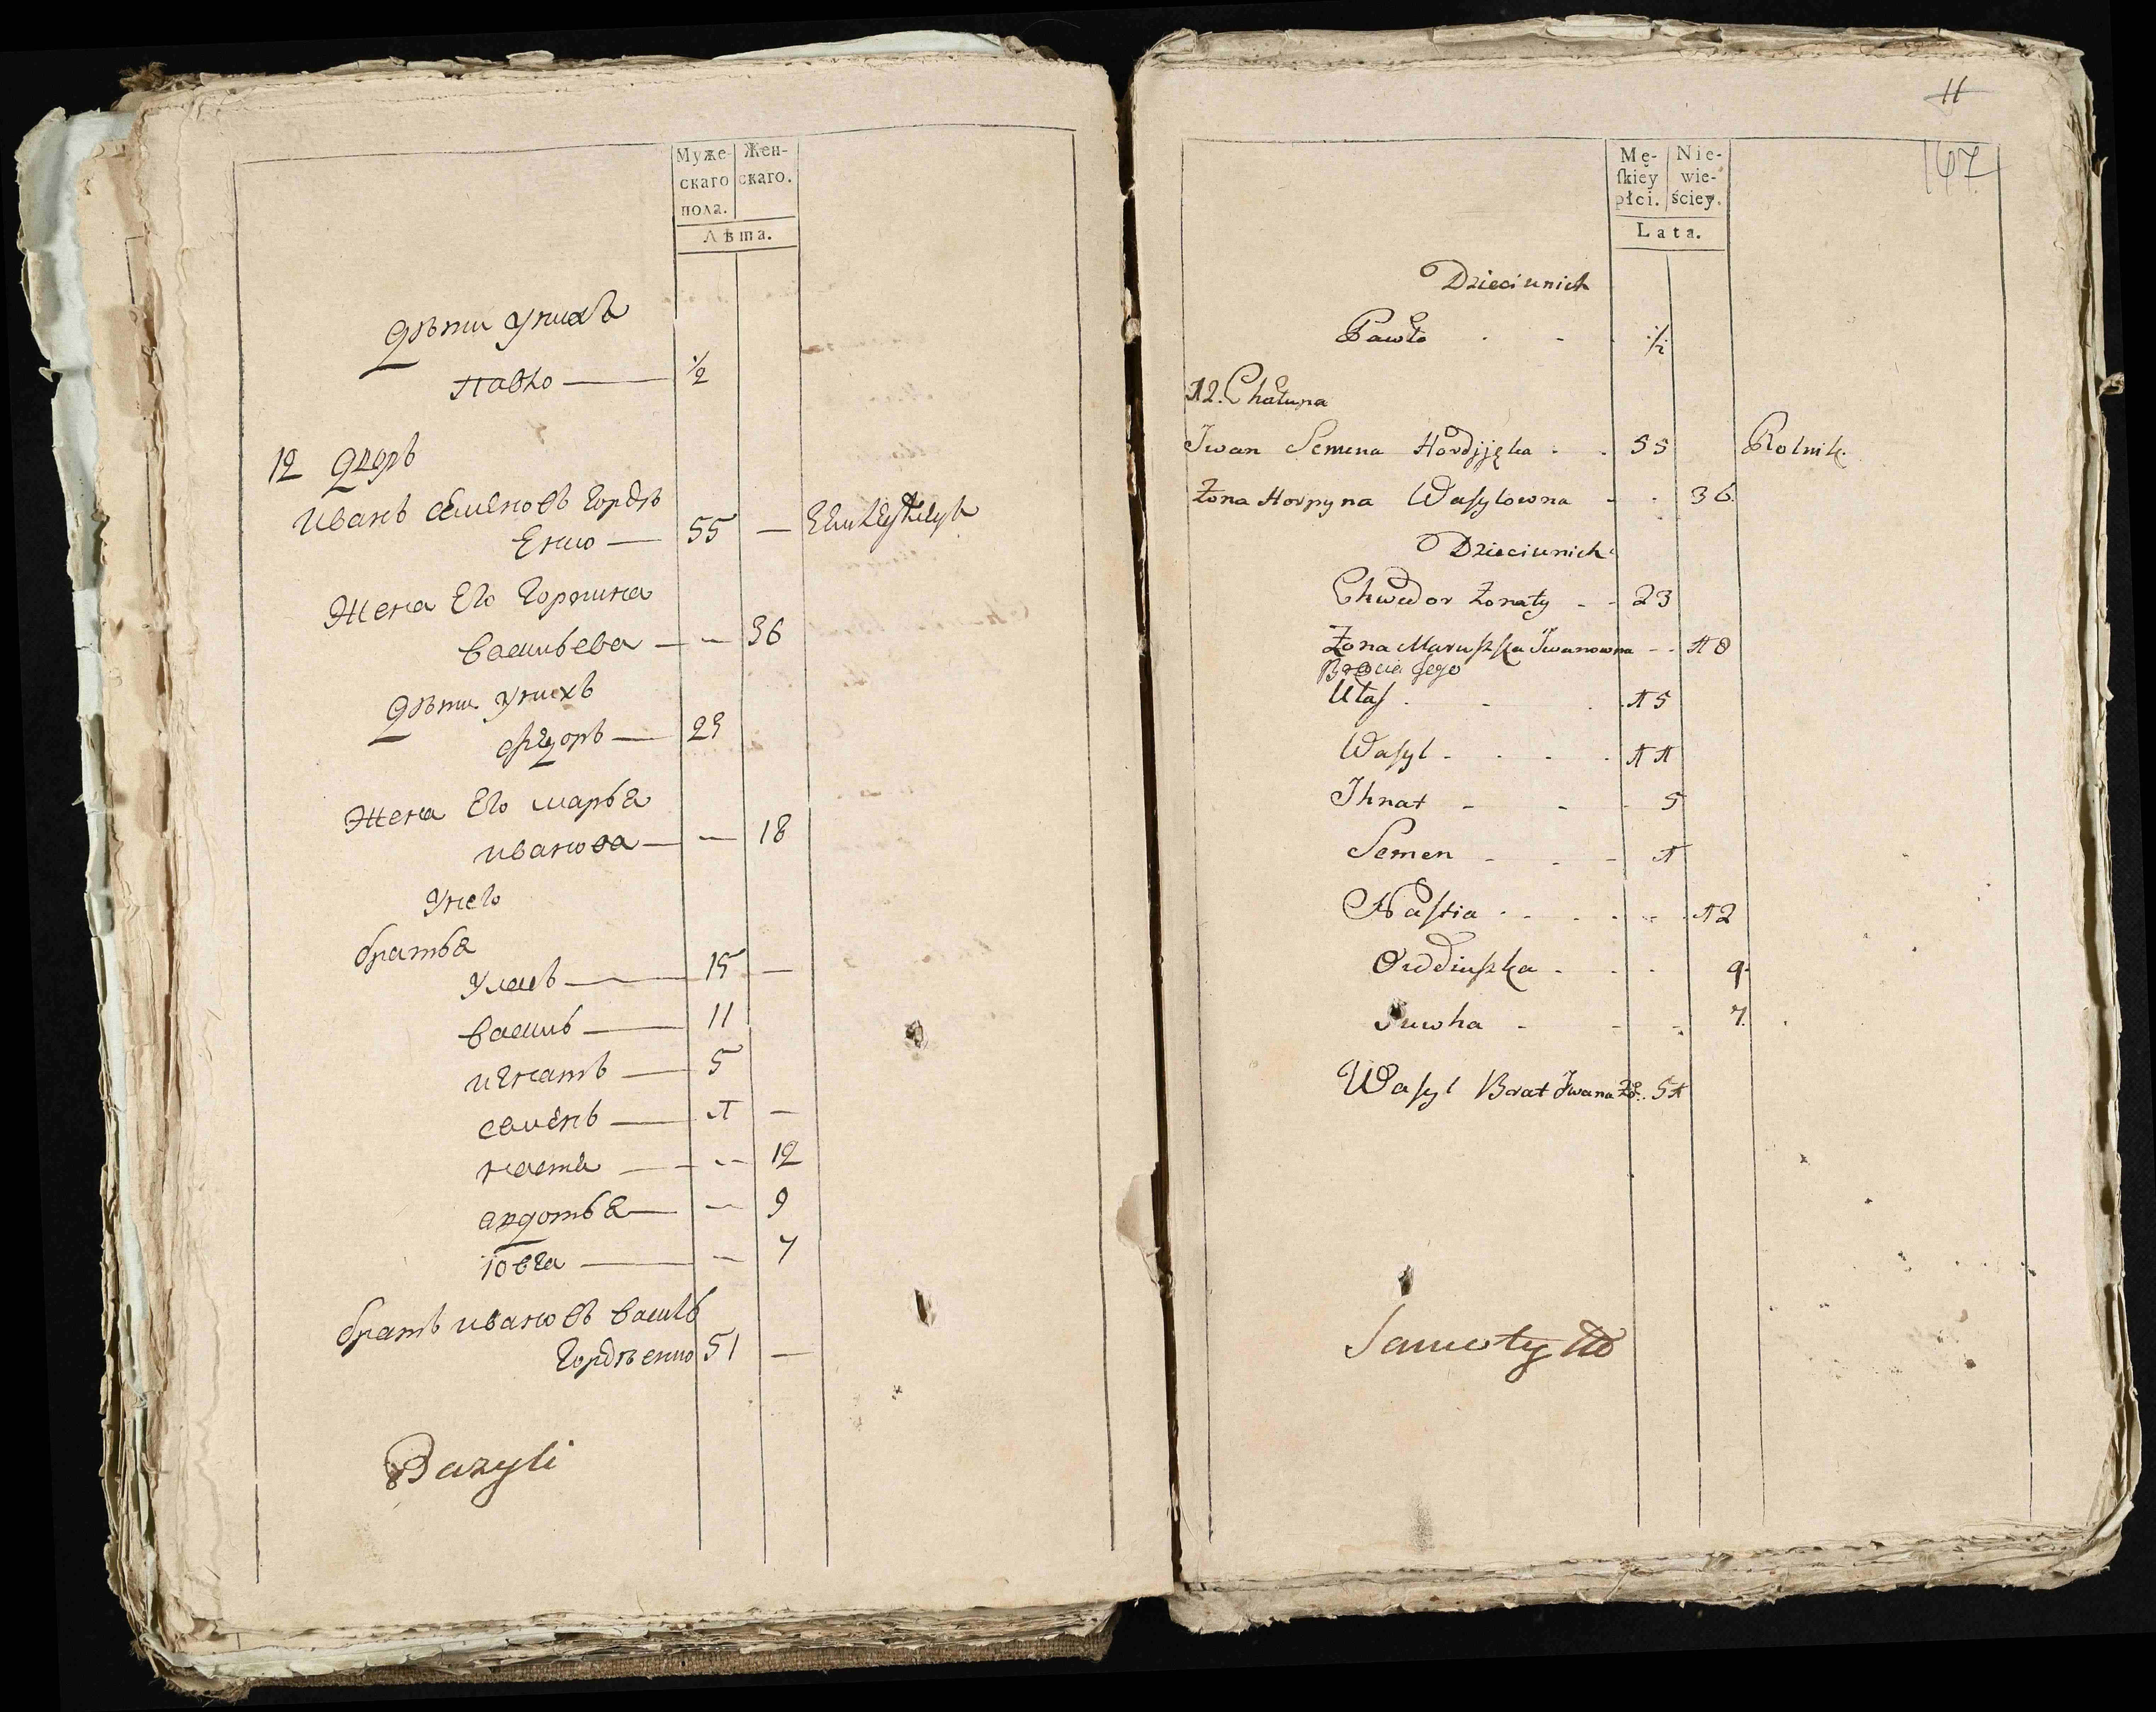 Муже-
скаго
пола.
Жен-
скаго.
Лѣта.
Дѣти унихъ
павло — 1/2
12 Дворъ
Иванъ Семеновъ Гордѣ
енко — 55 —
Жена Его Горпина
Васильева — — 36
Дѣти унихъ
Федоръ — 23
Жена Его Марья
иванова — — 18
унего
братья
уласъ — 15 —
василь — 11
игнатъ — 5
семенъ — 1 —
настя — — 12
авдотья — — 9
ювга — — 7
братъ ивановъ василь
Гордѣенко 51 —
Bazyli
11
167
Mę-
ſkiey
płci.
Nie-
wie-
ściey.
Lata.
Dzieci unich
Pawło 1/2
12. Chałupa
Iwan Semena Hordijęka 55 Rolnik
Żona Horpyna Wasylowna 36
Dzieci unich
Chwedor Żonaty 23
Żona Maruszka Iwanowna 18
Bracia Jego
Ułas 15
Wasyl 11
Ihnat 5
Semen 1
Nastia 12
Owdiuszka 9
Juwha 7
Wasyl Brat Iwana 51